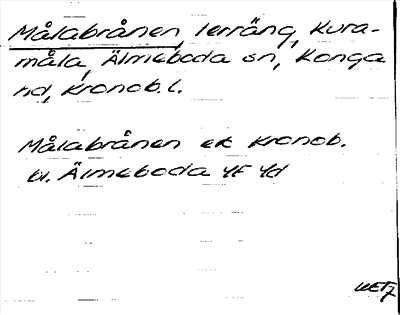 Målabrånen, terräng, Kura-
måla, Älmeboda sn, Konga
hd, Kronob. l.
Målabrånen ek Kronob.
bl. Älmeboda 4F 4d